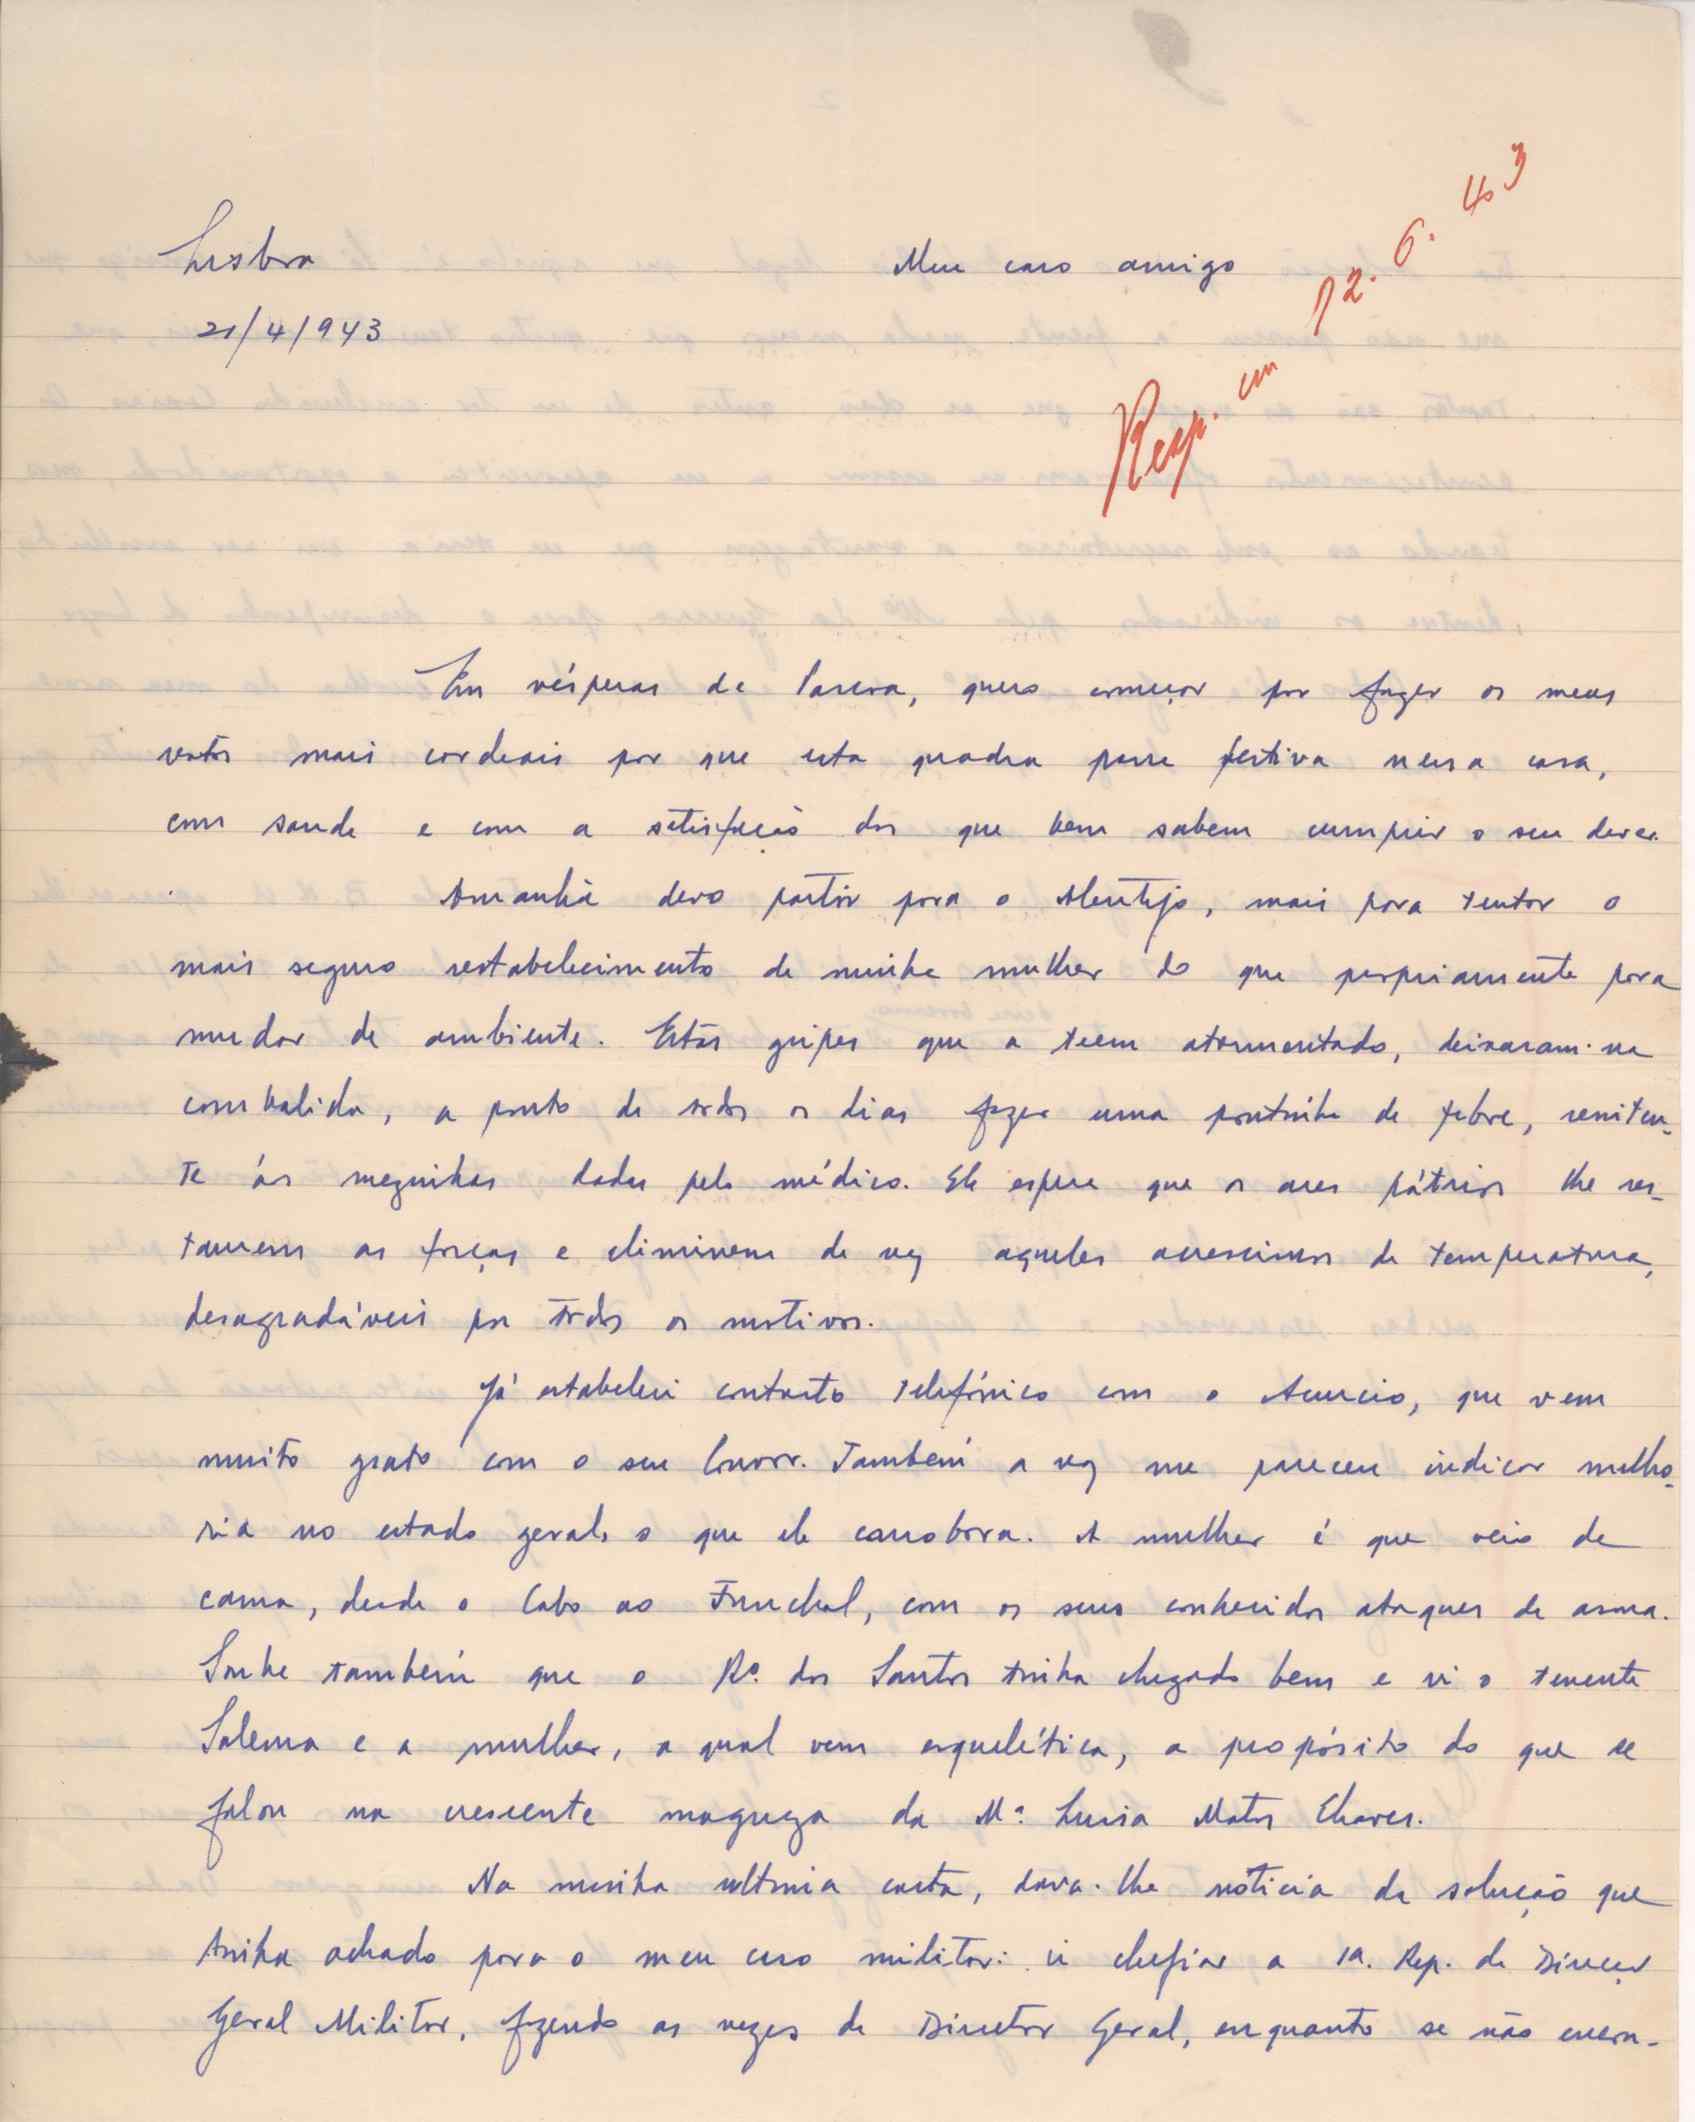 Lisboa
Meu caro amigo
21/4/943
Resp. em 12.6.43
Em vésperas de Pascoa, quero começar por fazer os meus
votos mais cordeais por que esta quadra passe festiva nessa casa,
com saude e com a satisfação dos que bem sabem cumprir o seu dever.
Amanhã devo partir para o Alentejo, mais para tentar o
mais seguro restabelecimento de minha mulher do que propriamente para
mudar de ambiente. Estas gripes que a teem atormentado, deixaram-na
combalida, a ponto de todos os dias fazer uma pontinha de febre, renitен-
te ás mezinhas dadas pelo médico. Ele espera que os ares pátrios lhe res-
taurem as forças e eliminem de vez aqueles acrescimos de temperatura,
desagradáveis por todos os motivos.
Já estabeleci contacto telefónico com o Acurcio, que vem
muito grato com o seu louvor. Tambem a voz me pareceu indicar melho-
ria no estado geral, o que ele corrobora. A mulher é que veio de
cama, desde o Cabo ao Funchal, com os seus conhecidos ataques de asma.
Soube tambem que o Rº. dos Santos tinha chegado bem e vi o tenente
Salema e a mulher, a qual vem esquelética, a propósito do que se
falou na crescente magreza da Mª. Luisa Matos Chaves.
Na minha ultima carta, dava-lhe noticia da solução que
tinha achado para o meu caso militar: ir chefiar a 1ª. Rep. da Direcção
Geral Militar, fazendo as vezes de Diretor Geral, enquanto se não encon-